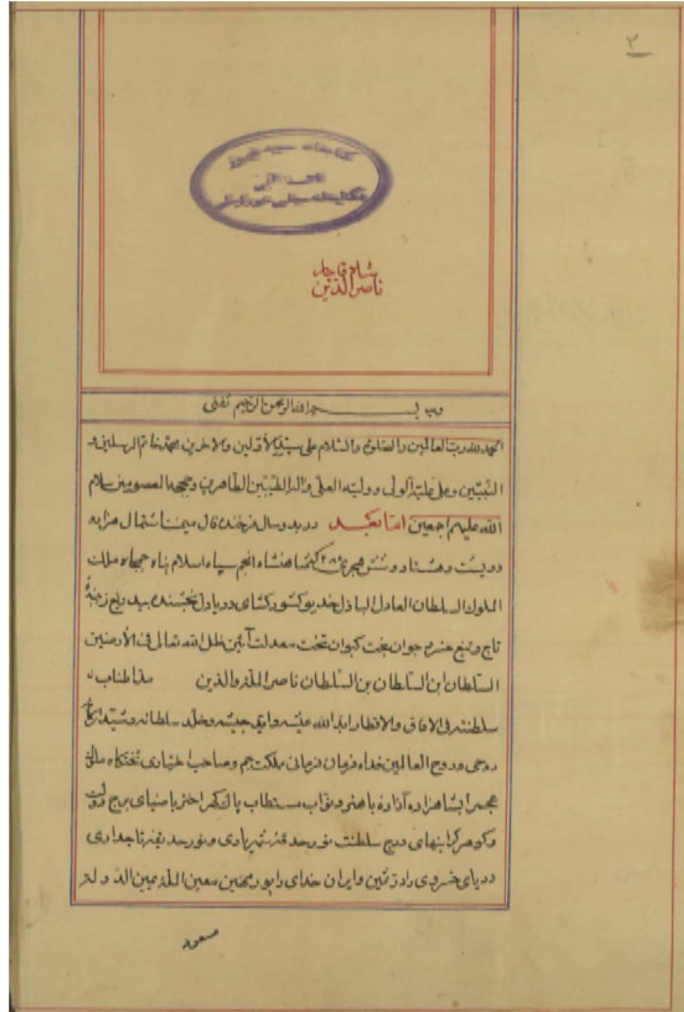 ۳
شاه قاجار
ناصر الدین
بسم الله الرحمن الرحیم
الحمد لله رب العالمین والصلوة والسلام علی سید الأولین والاخرین محمد خاتم المرسلین و
النبیین وعلی علی الولی وولیه العلی واله الطیبین الطاهرین وحججه المعصومین سلام
الله علیهم اجمعین اما بعد در بدو سال فرخنده فال میمنت اشتمال هزار و
دویست و هشتاد و شش هجری ۱۲۸۶ که شاهنشاه انجم سپاه اسلام پناه جمجاه ملک
الملوک السلطان العادل الباذل خدیو کشورکشای دریادل
تاج و تخت جوان بخت کیوان تخت معدلت آئین ظل الله تعالی فی الأرضین
السلطان ابن السلطان بن السلطان ناصر الملة والدین مد اطناب
سلطنته فی الافاق والاقطار اید الله عیشه وایّد جیشه وخلد سلطانه وشید
روحی وروح العالمین فداه فرمان فرمائی مملکت جم وصاحب اختیاری تختکاه
عجم را بشاهزاده آزاده باهنر و نواب مستطاب والاکهر اختر با ضیای برج دولت
وکوهر کرانبهای درج سلطنت نور حدقه شهریاری ونور حدیقه تاجداری
دریای خسروی را در ثمین وایران خدای را پور مهین معین الملة یمین الدوله
مسعود